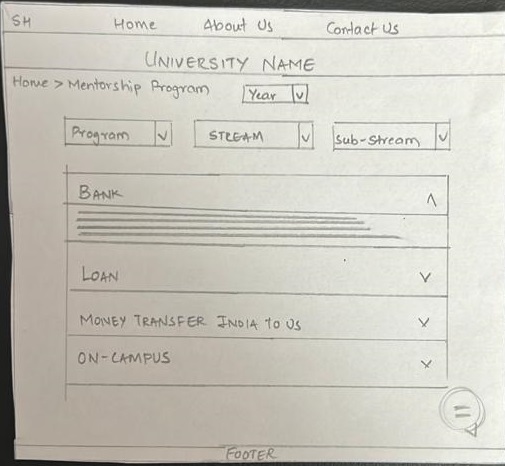 SH Home About Us Contact Us
UNIVERSITY NAME
Home > Mentorship Program
Year
Program STREAM Sub-Stream
BANK
LOAN
MONEY TRANSFER INDIA TO US
ON-CAMPUS
FOOTER